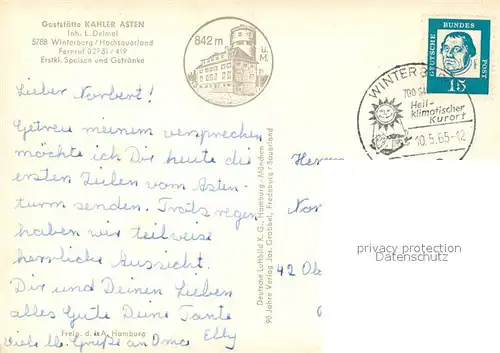 Gaststätte KAHLER ASTEN
Inh. L. Deimel
5788 Winterberg / Hochsauerland
Fernruf 02981 / 419
Erstkl. Speisen und Getränke
842 m
ü. M.
DEUTSCHE BUNDESPOST
15
WINTERBERG
700
Heil-
klimatischer
Kurort
10.5.65-12
Lieber Norbert!
Getreu meinem versprechen
möchte ich Dir heute die
ersten Zeilen vom Asten-
turm senden. Trotz regen
haben wir teilweise
herrliche Aussicht.
Dir und Deinen Lieben
alles Gute Deine Tante
Elly
viele lb. Grüße an Oma
Deutsche Luftbild K. G., Hamburg - München
90 Jahre Verlag Jos. Grobbel, Fredeburg / Sauerland
Herrn
Nor
42 Obe
privacy protection
Datenschutz
Freig. d. LA. Hamburg